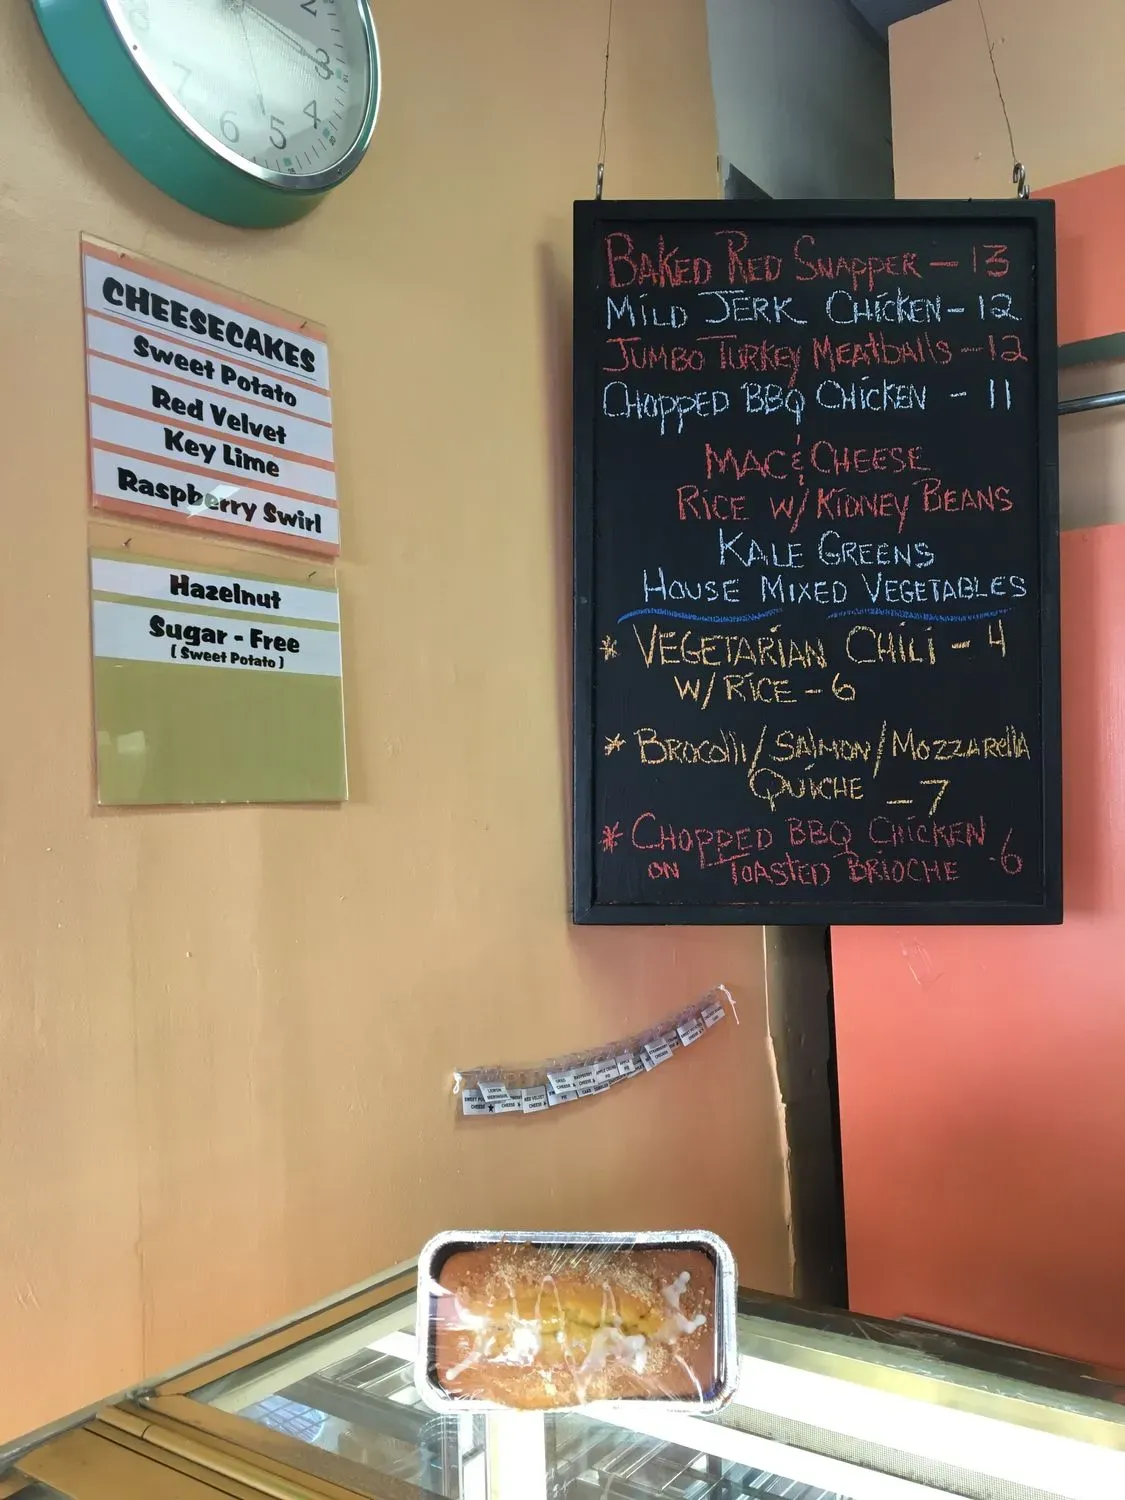 2
3
4
5
6
7
8
CHEESECAKES
Sweet Potato
Red Velvet
Key Lime
Raspberry Swirl
Hazelnut
Sugar - Free
( Sweet Potato )
BAKED RED SNAPPER - 13
MILD JERK CHICKEN - 12
JUMBO TURKEY MEATballs - 12
CHOPPED BBQ CHICKEN - 11
MAC & CHEESE
RICE W/ KIDNEY BEANS
KALE GREENS
HOUSE MIXED VEGETABLES
* VEGETARIAN CHILI - 4
W/ RICE - 6
* BROCOlli/SAlMON/MOZZARellA
QUICHE - 7
* CHOPPED BBQ CHICKEN
ON TOASTED BRIOCHE - 6
LEMON
MERINGUE
RED VELVET
CHEESE